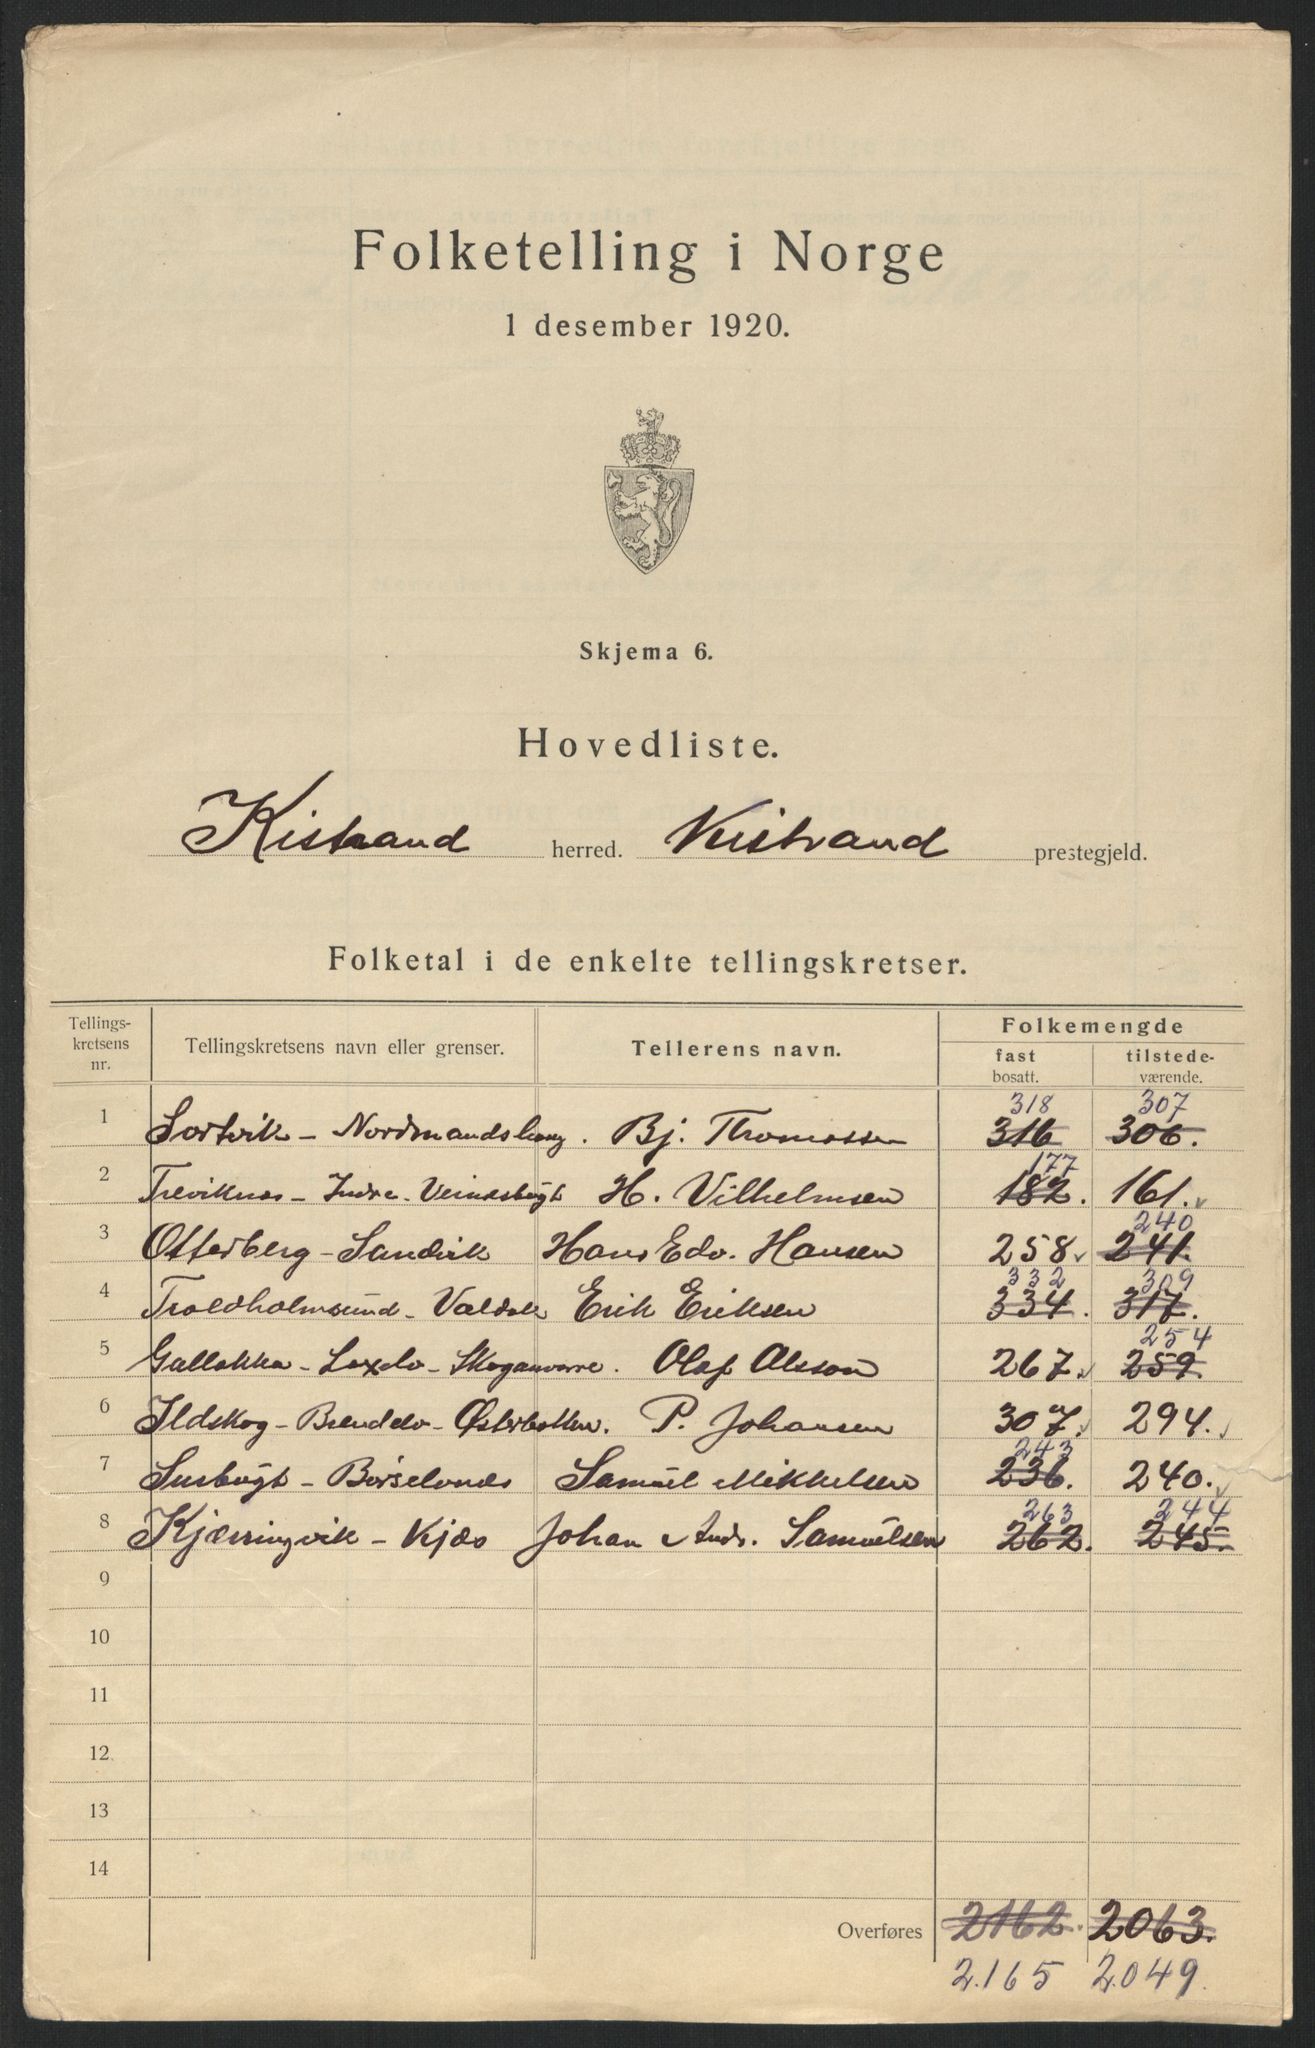 Folketelling i Norge
1 desember 1920.
Skjema 6.
Hovedliste.
Kistrand herred. Kistrand prestegjeld.
Folketal i de enkelte tellingskretser.
Tellings-kretsens nr. Tellingskretsens navn eller grenser. Tellerens navn. Folkemengde
fast bosatt. tilstede-værende.
318 307
1 Sortvik - Nordmandshaug. Bj. Thomassen 316 306.
177
2 Treviknes - Indre - H. Vilhelmsen 182. 161.
240
3 Otterberg - Sandvik Hans Edv. Hansen 258 241.
332 309
4 Troldholmsund - Valdak Erik Eriksen 334. 317.
254
5 Gallokka - Laxelv - Skoganvarre. Olaf Olsson 267. 259
6 Ildskog - Brendelv - Østerbotten. P. Johansen 307. 294.
243
7 - Børselvnes Samuel Mikkelsen 236. 240.
263 244
8 Kjærringvik - Kjæs Johan Andr. Samuelsen 262. 245.
9
10
11
12
13
14
Overføres 2162. 2063.
2.165 2.049.